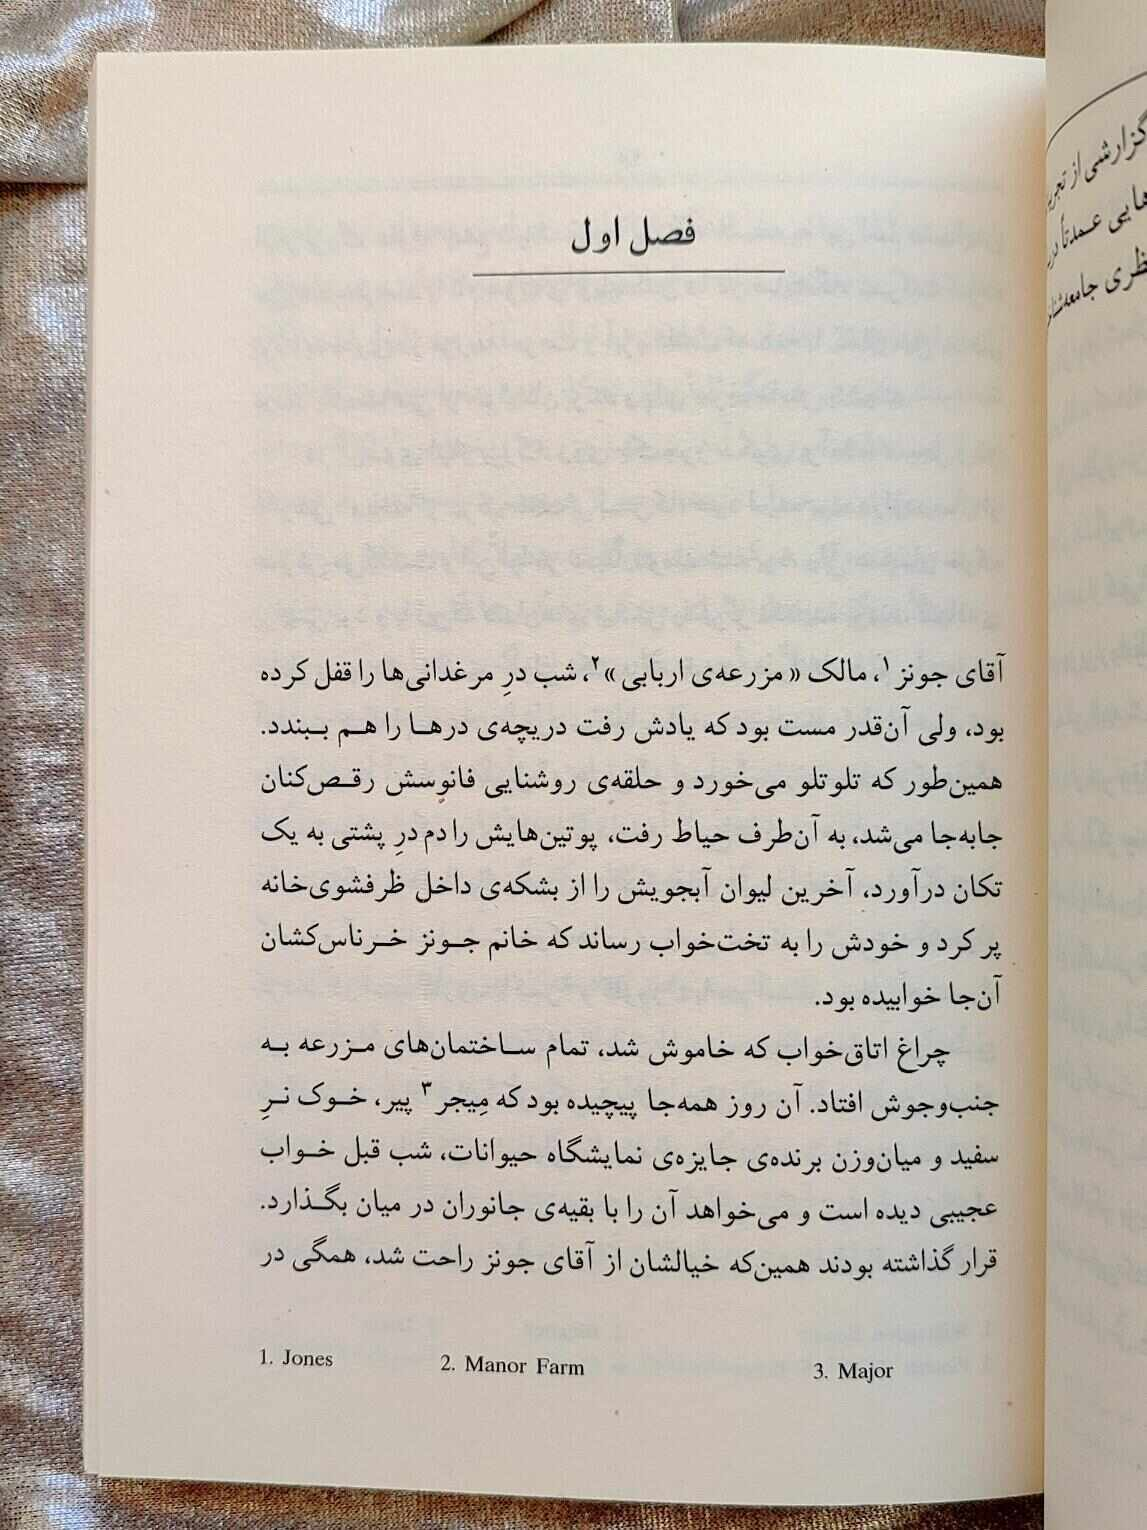 فصل اول
آقای جونز ۱، مالک «مزرعه‌ی اربابی»۲، شب درِ مرغدانی‌ها را قفل کرده
بود، ولی آن‌قدر مست بود که یادش رفت دریچه‌ی درها را هم ببندد.
همین‌طور که تلوتلو می‌خورد و حلقه‌ی روشنایی فانوسش رقص‌کنان
جابه‌جا می‌شد، به آن‌طرف حیاط رفت، پوتین‌هایش را دم درِ پشتی به یک
تکان درآورد، آخرین لیوان آبجویش را از بشکه‌ی داخل ظرفشوی‌خانه
پر کرد و خودش را به تخت‌خواب رساند که خانم جونز خرناس‌کشان
آن‌جا خوابیده بود.
چراغ اتاق‌خواب که خاموش شد، تمام ساختمان‌های مزرعه به
جنب‌وجوش افتاد. آن روز همه‌جا پیچیده بود که مِیجر ۳ پیر، خوک نرِ
سفید و میان‌وزن برنده‌ی جایزه‌ی نمایشگاه حیوانات، شب قبل خواب
عجیبی دیده است و می‌خواهد آن را با بقیه‌ی جانوران در میان بگذارد.
قرار گذاشته بودند همین‌که خیالشان از آقای جونز راحت شد، همگی در
1. Jones 2. Manor Farm 3. Major
گزارشی از
هایی عمدتاً
نظری